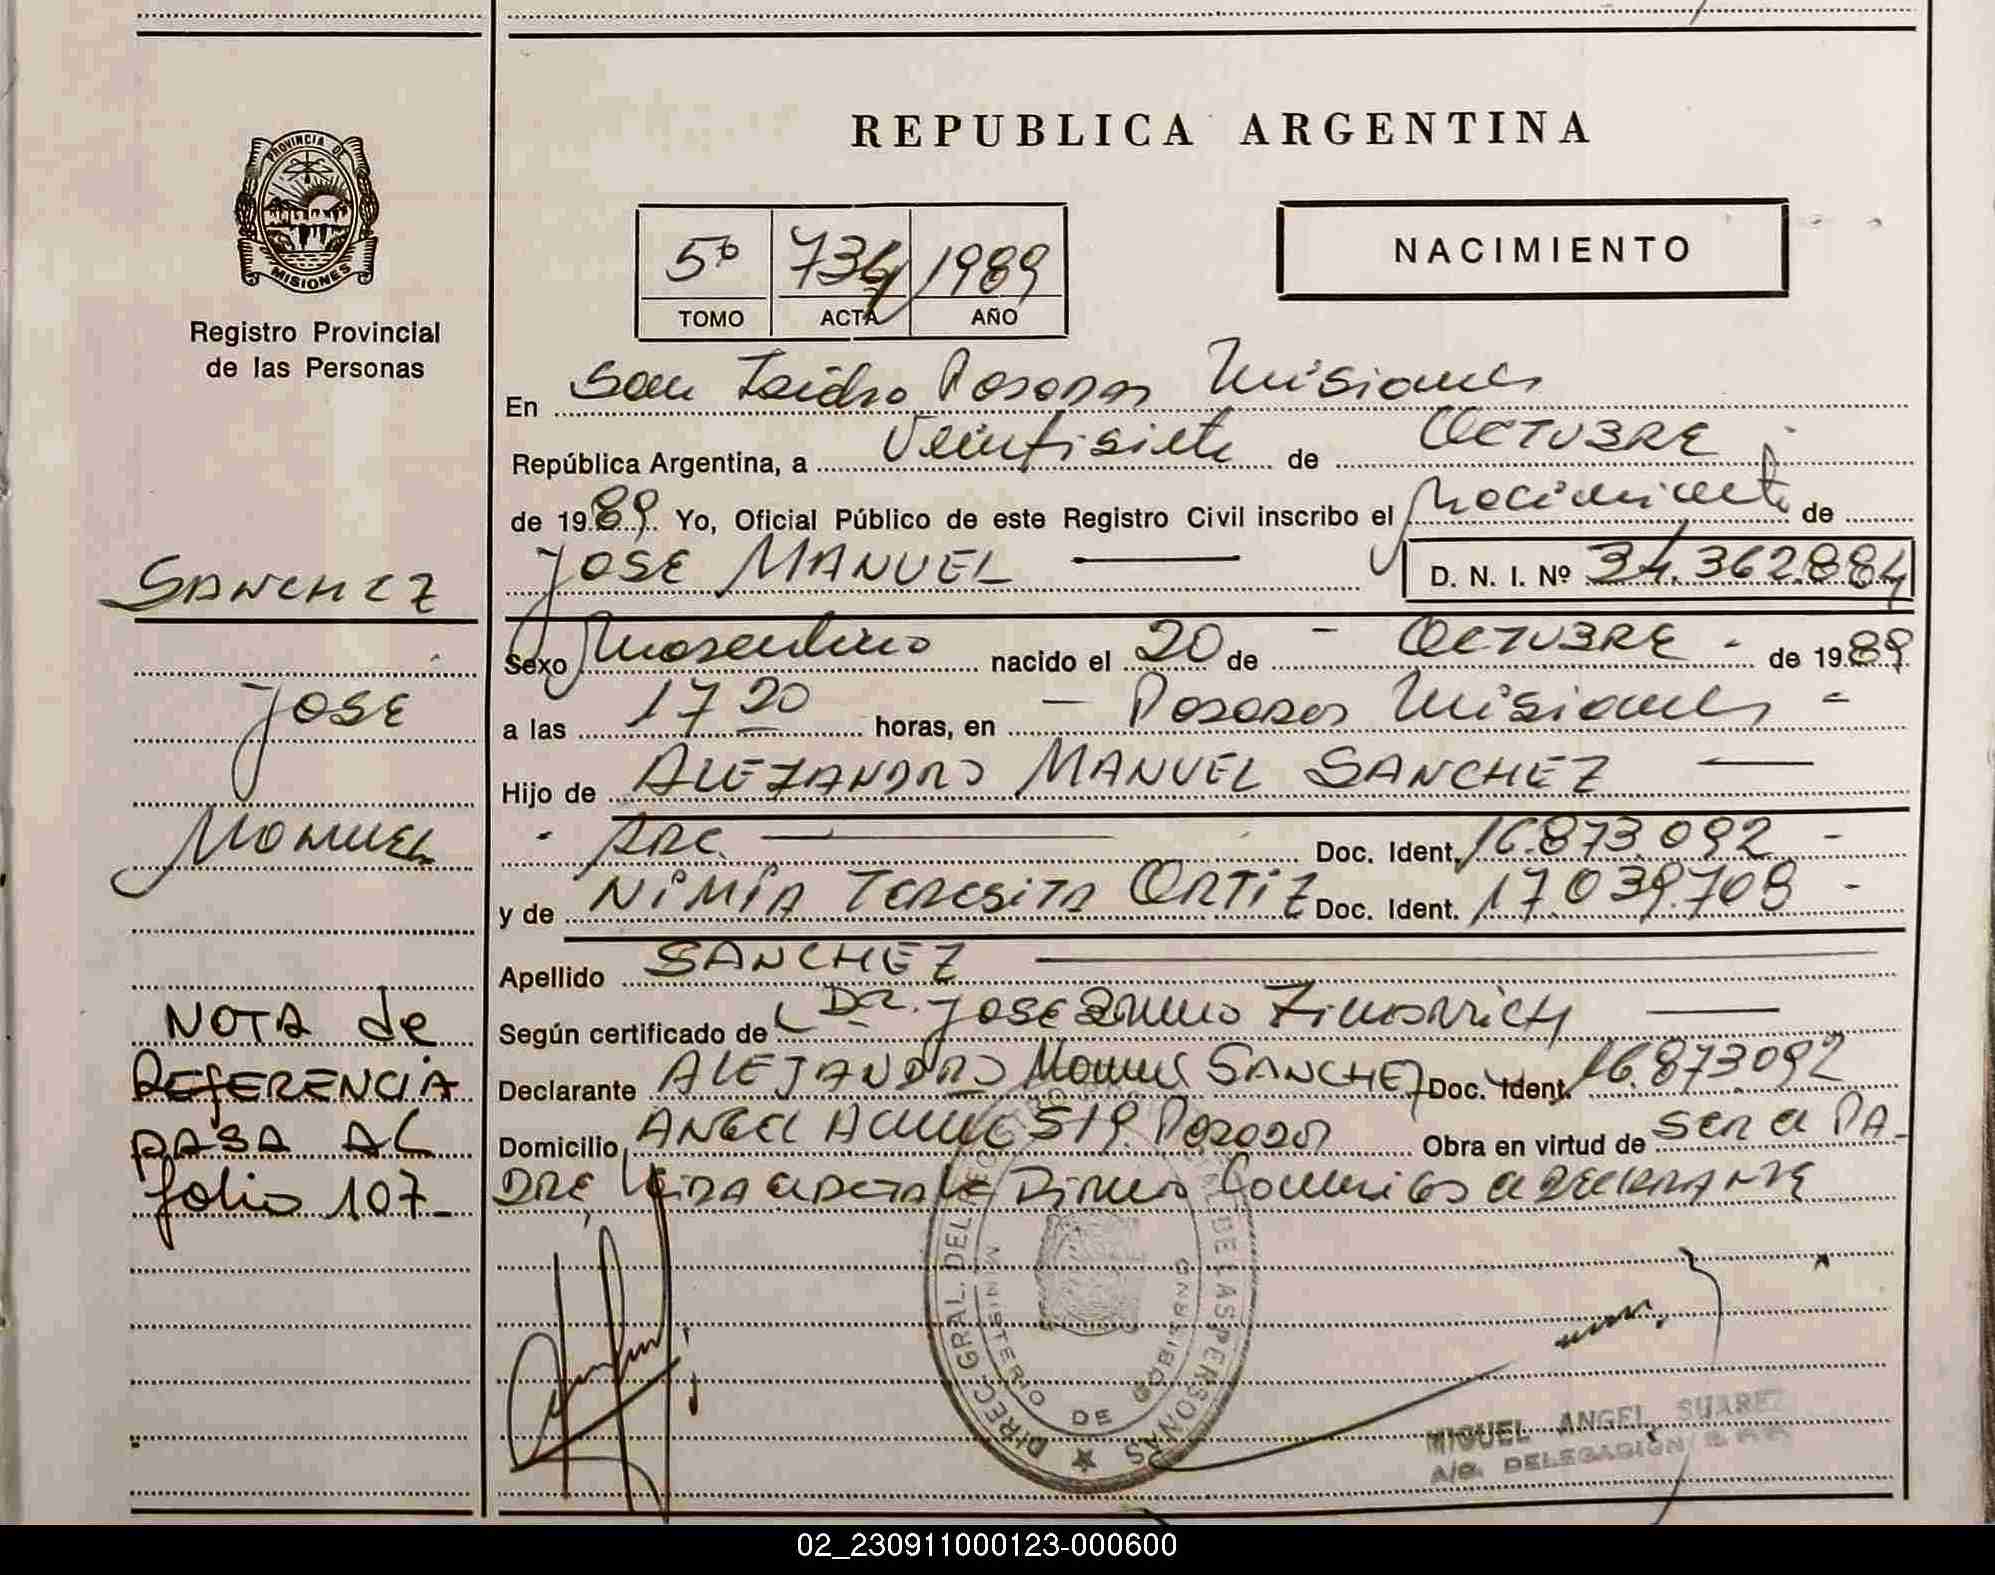 REPUBLICA ARGENTINA
PROVINCIA DE
MISIONES
Registro Provincial
de las Personas
5º 734 1989
TOMO ACTA AÑO
NACIMIENTO
En San Isidro Posadas Misiones
República Argentina, a Veintisiete de OCTUBRE
de 1989 Yo, Oficial Público de este Registro Civil inscribo el Nacimiento de
JOSE MANUEL D. N. I. Nº 34.362.884
SANCHEZ
JOSE
MANUEL
Sexo Masculino nacido el 20 de - OCTUBRE - de 1989
a las 17 20 horas, en - Posadas Misiones -
Hijo de ALEJANDRO MANUEL SANCHEZ
- ARG. Doc. Ident. 16.873.092 -
y de NIMIA TERESITA ORTIZ Doc. Ident. 17.039.709 -
Apellido SANCHEZ
Según certificado de DR. JOSE BRUNO
Declarante ALEJANDRO Manuel SANCHEZ Doc. Ident. 16.873092
Domicilio ANGEL ACUÑA 519. Posadas Obra en virtud de ser el PA-
DRE Leida el acta la Firma Conmigo el DECLARANTE
NOTA de
REFERENCIA
PASA AL
folio 107-
DIREC. GRAL. DEL REGISTRO DE LAS PERSONAS
MINISTERIO DE GOBIERNO
MIGUEL ANGEL SUAREZ
A/C. DELEGACION
02_230911000123-000600